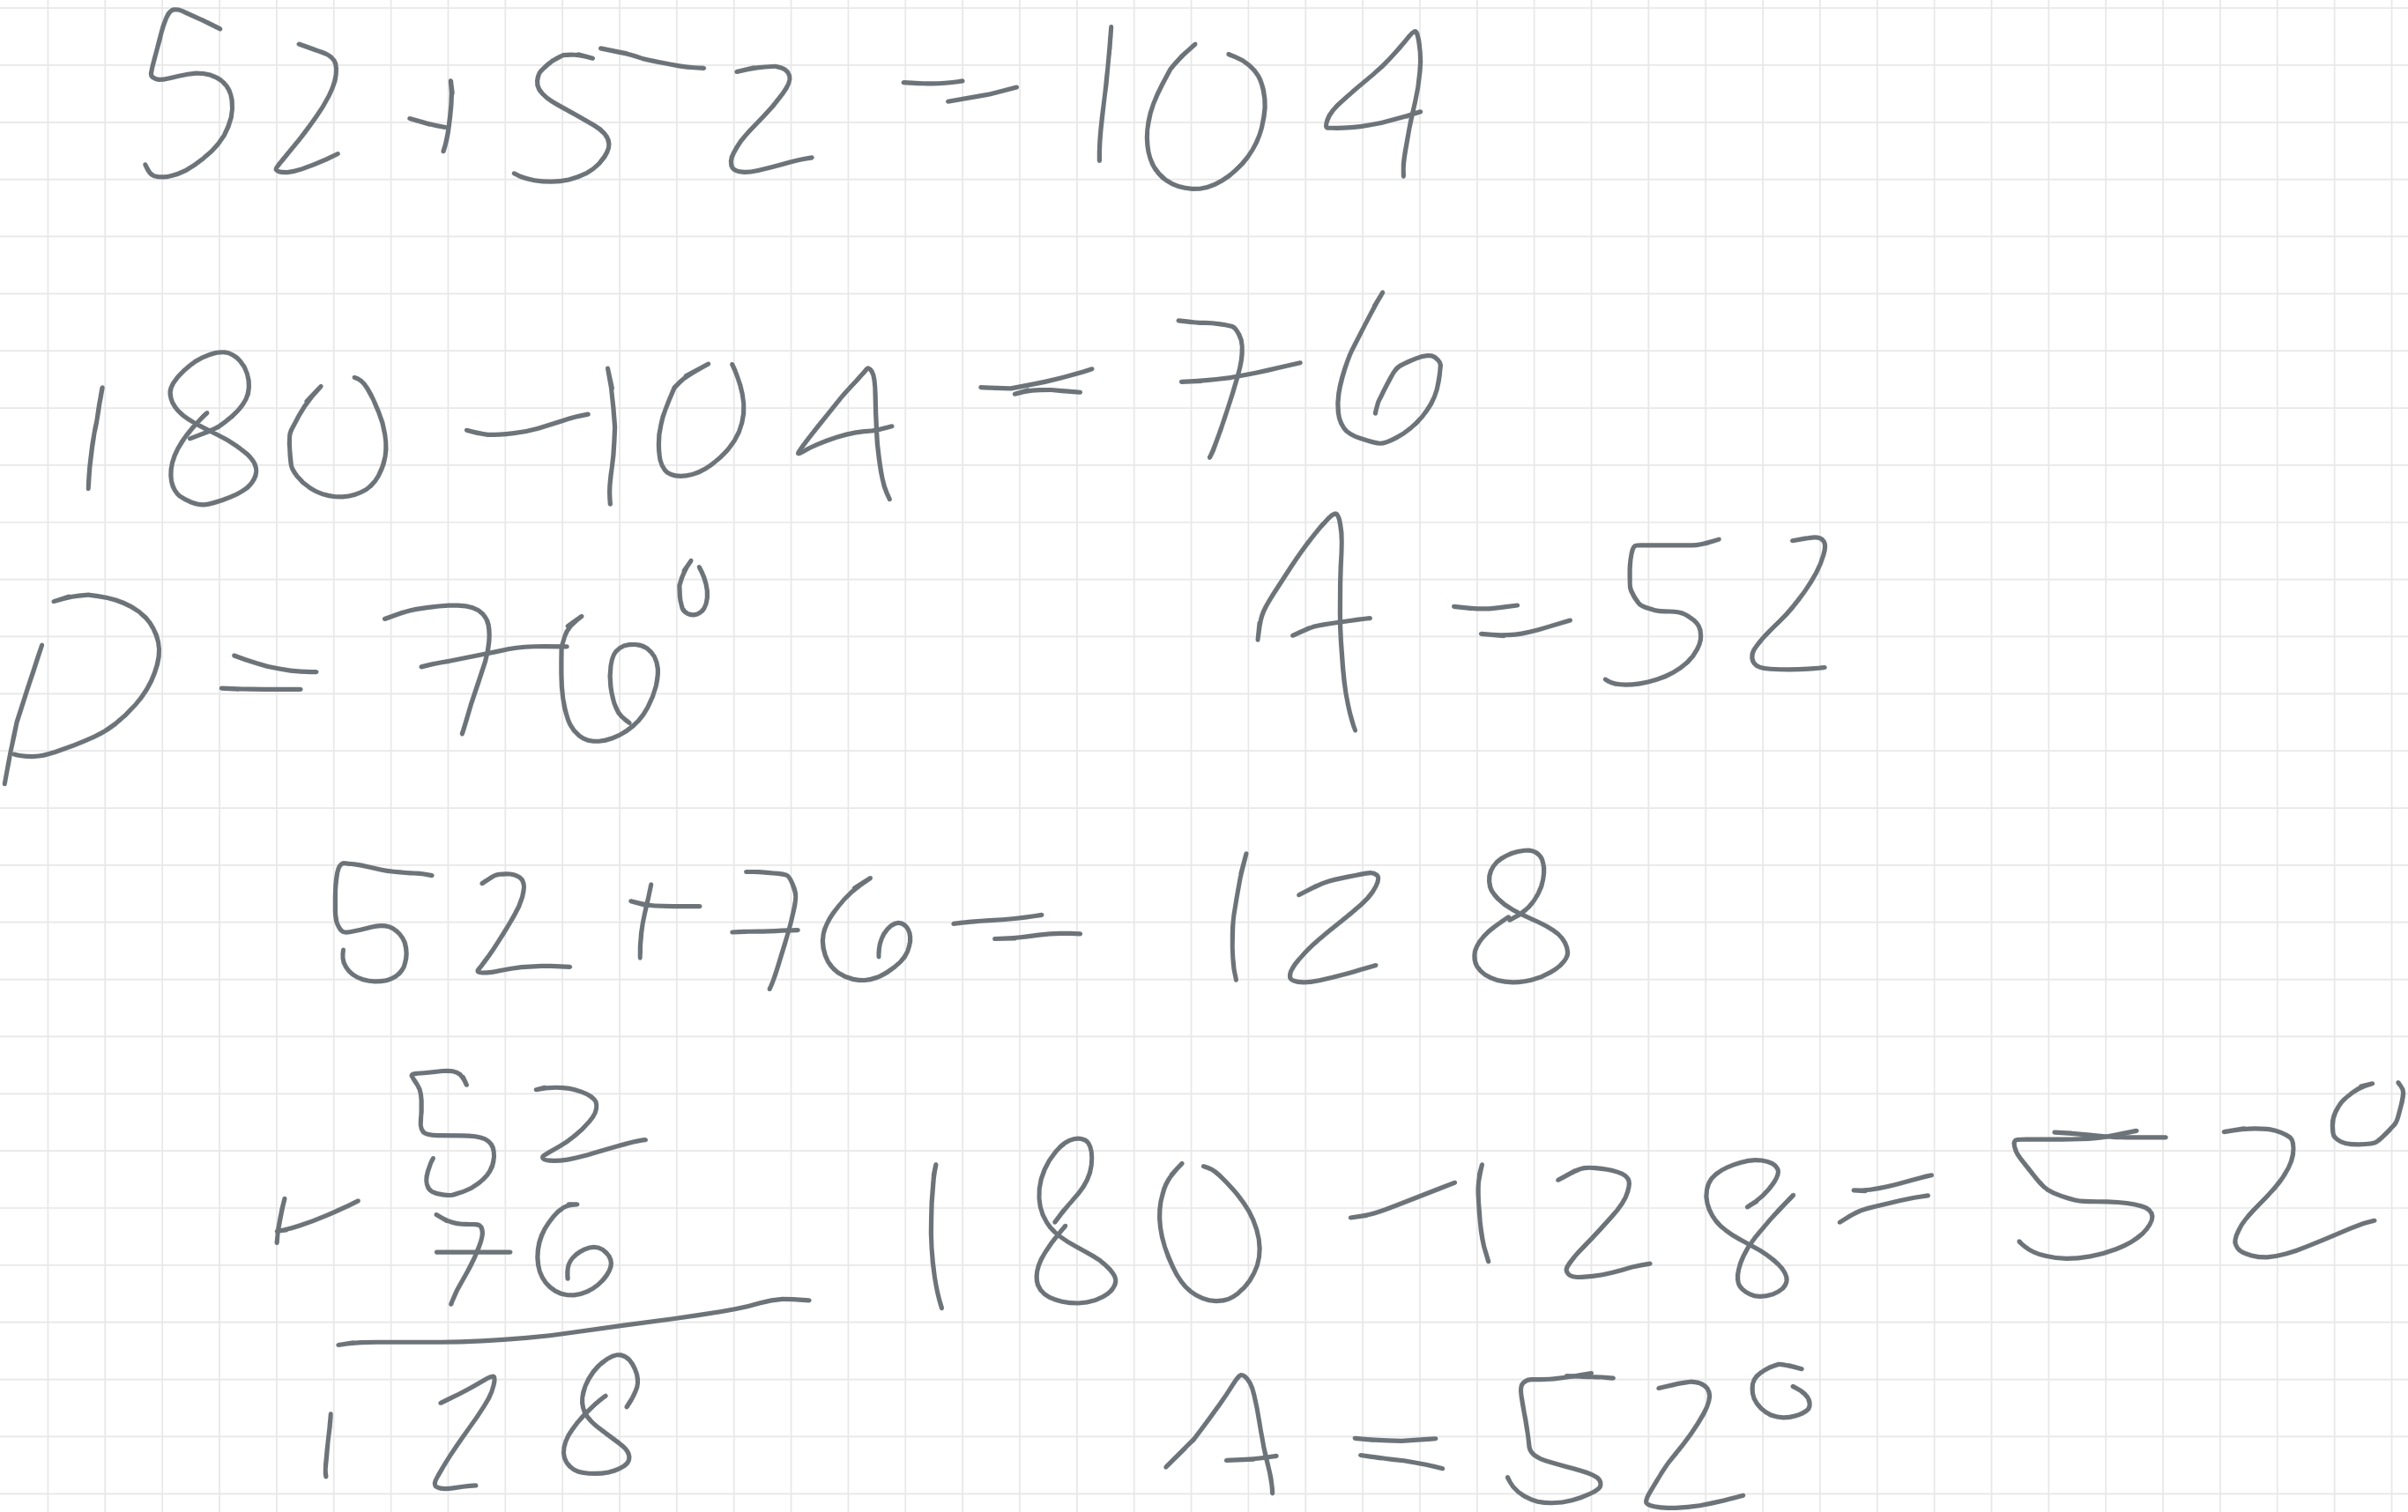 52+52=104
180-104=76
D=76° A=52
52+76=128
52
+
76
180-128=52°
128
A=52°